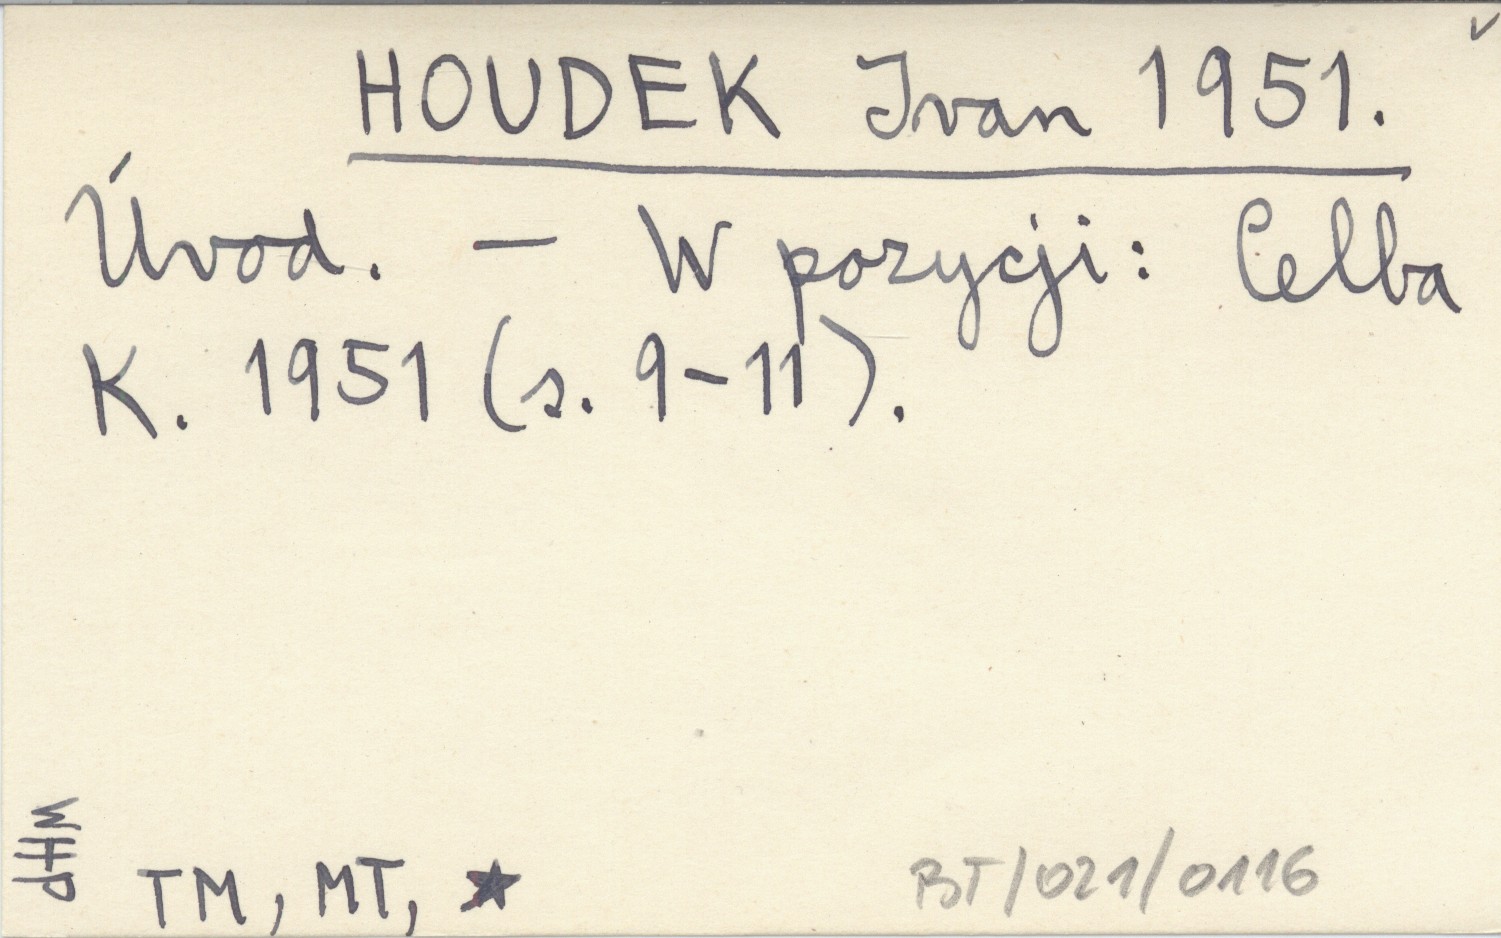 HOUDEK Ivan 1951.
Úvod. — W pozycji: Celba
K. 1951 (s. 9-11).
WHP
TM, MT, ★
BT/021/0116